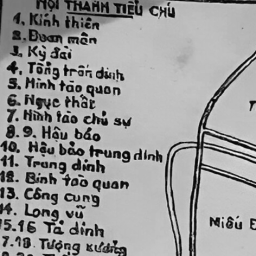 NỘI THÀNH TIỂU CHÚ
1. Kính thiên
2. Đoan môn
3. Kỳ đài
4. Tông trấn dinh
5. Hình tào quan
6. Ngục thất
7. Hình tào chủ sự
8.9. Hậu bảo
10. Hậu bảo trung dinh
11. Trung dinh
12. Binh tào quan
13. Công cung
14. Long vũ
15.16 Tả dinh
17.18 Tượng xưởng
Miếu